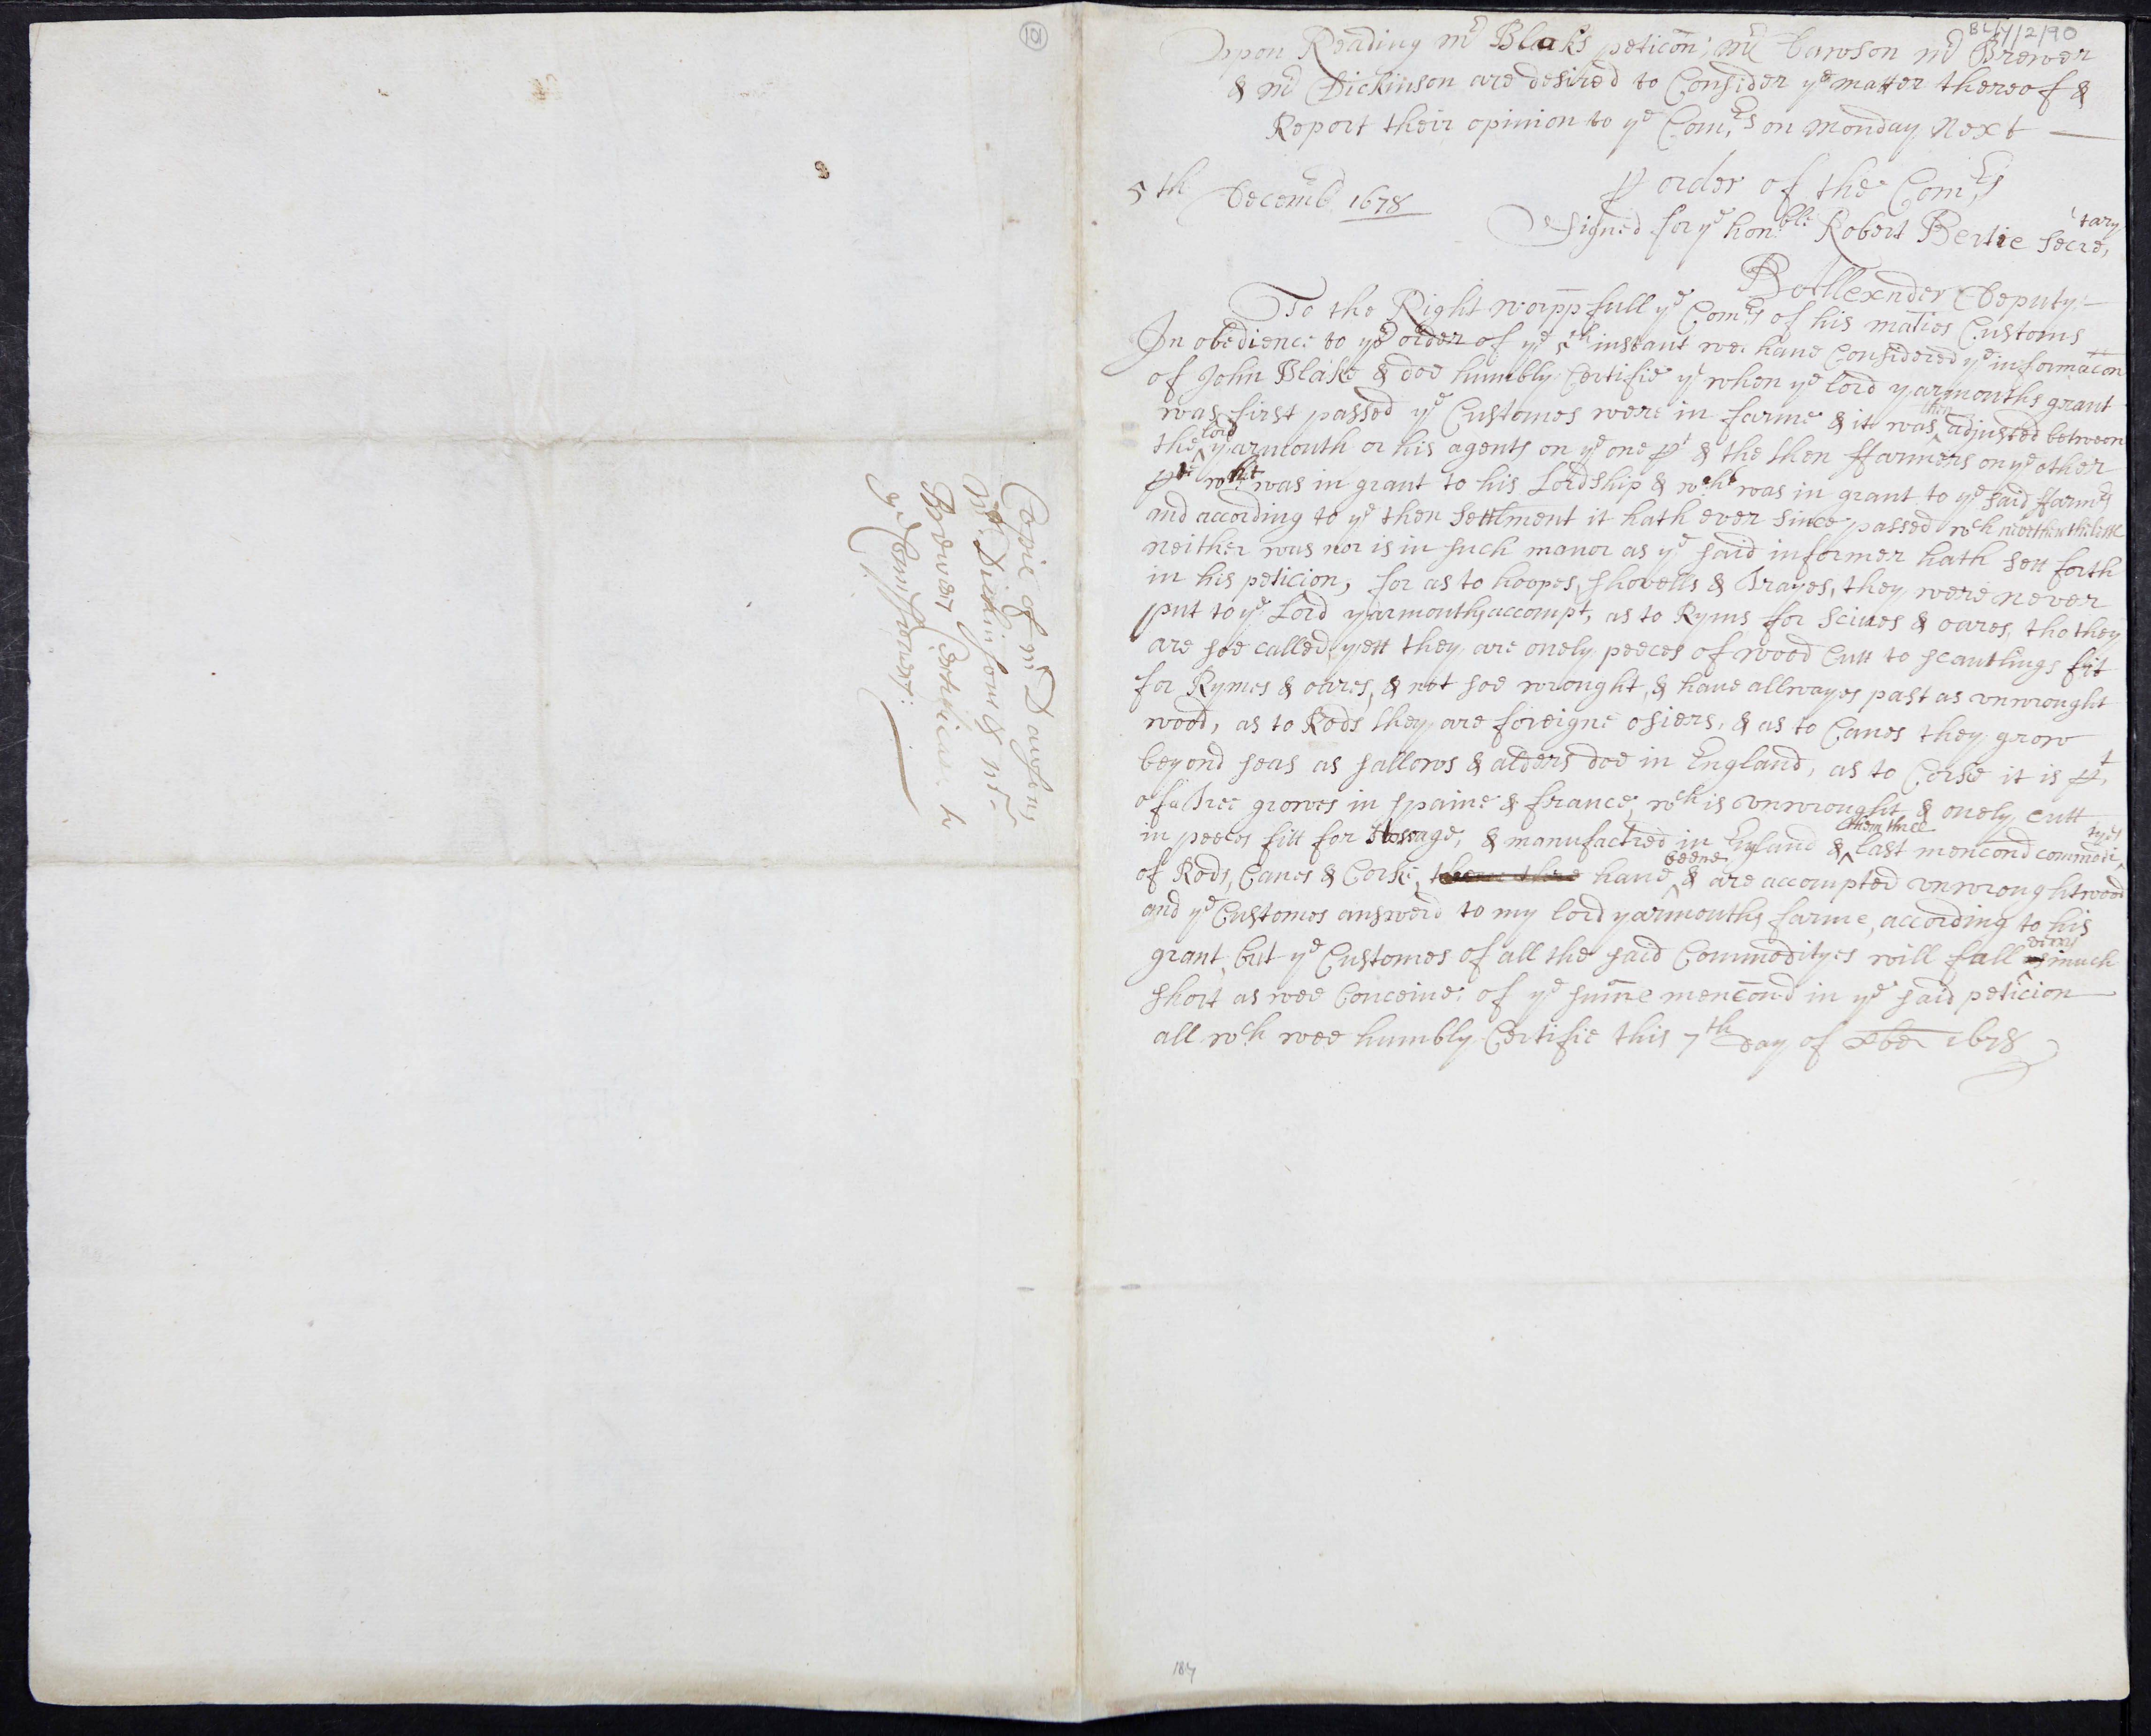 101
BL/Y/2/90
Vpon Reading mr Blaks peticōn; mr Dawson mr Brewer
& mr Dickinson are desired to Consider ye matter thereof &
Report their opinion to ye Comrs on Monday Next —
5th Decembr 1678
p order of the Comrs
Signed for ye honble Robert Bertie Secretary
Ro Allexnder Deputy
To the Right worppfull ye Comrs of his maties Customs
In obedience to ye order of ye 5th instant wee haue Considered ye informacōn
of John Blake & doe humbly Certifie yt when ye lord yarmouths grant
was first passed ye Customes were in farme & itt was then adjusted between
the lord yarmouth or his agents on ye one pt & the then ffarmers on ye other
pte wht was in grant to his Lordship & wht was in grant to ye said ffarmrs
and according to ye then settlment it hath ever since passed wch neverthelesse
neither was nor is in such manor as ye said informer hath sett forth
in his peticion, for as to hoopes, shovells & Trayes, they were never
put to ye Lord yarmouths accompt, as to Ryms for sciues & oares, tho they
are soe called yett they are onely peeces of wood Cutt to scantlings fit
for Rymes & oares, & not soe wrought, & haue allwayes past as vnwrought
wood, as to Rods they are foreigne osiers, & as to Canes they grow
beyond seas as sallows & alders doe in England, as to Corke it is pt
of a Tree growes in spaine & france, wch is vnwrought & onely cutt
in peeces fitt for stowage, & manufactred in England & them three last mencond commoditys
of Rods, Canes & Corke, haue beene & are accompted vnwrought wood
and ye Customes answerd to my lord yarmouths farme, according to his
grant, but ye Customes of all the said Commodityes will fall very much
short as wee Conceiue, of ye sum̄e mencōnd in ye said peticion
all wch wee humbly Certifie this 7th day of xber 1678
184
Copie of mr Dawsons
mr Dickinsons & mr
Brewer Certificate to
ye Comissioners: